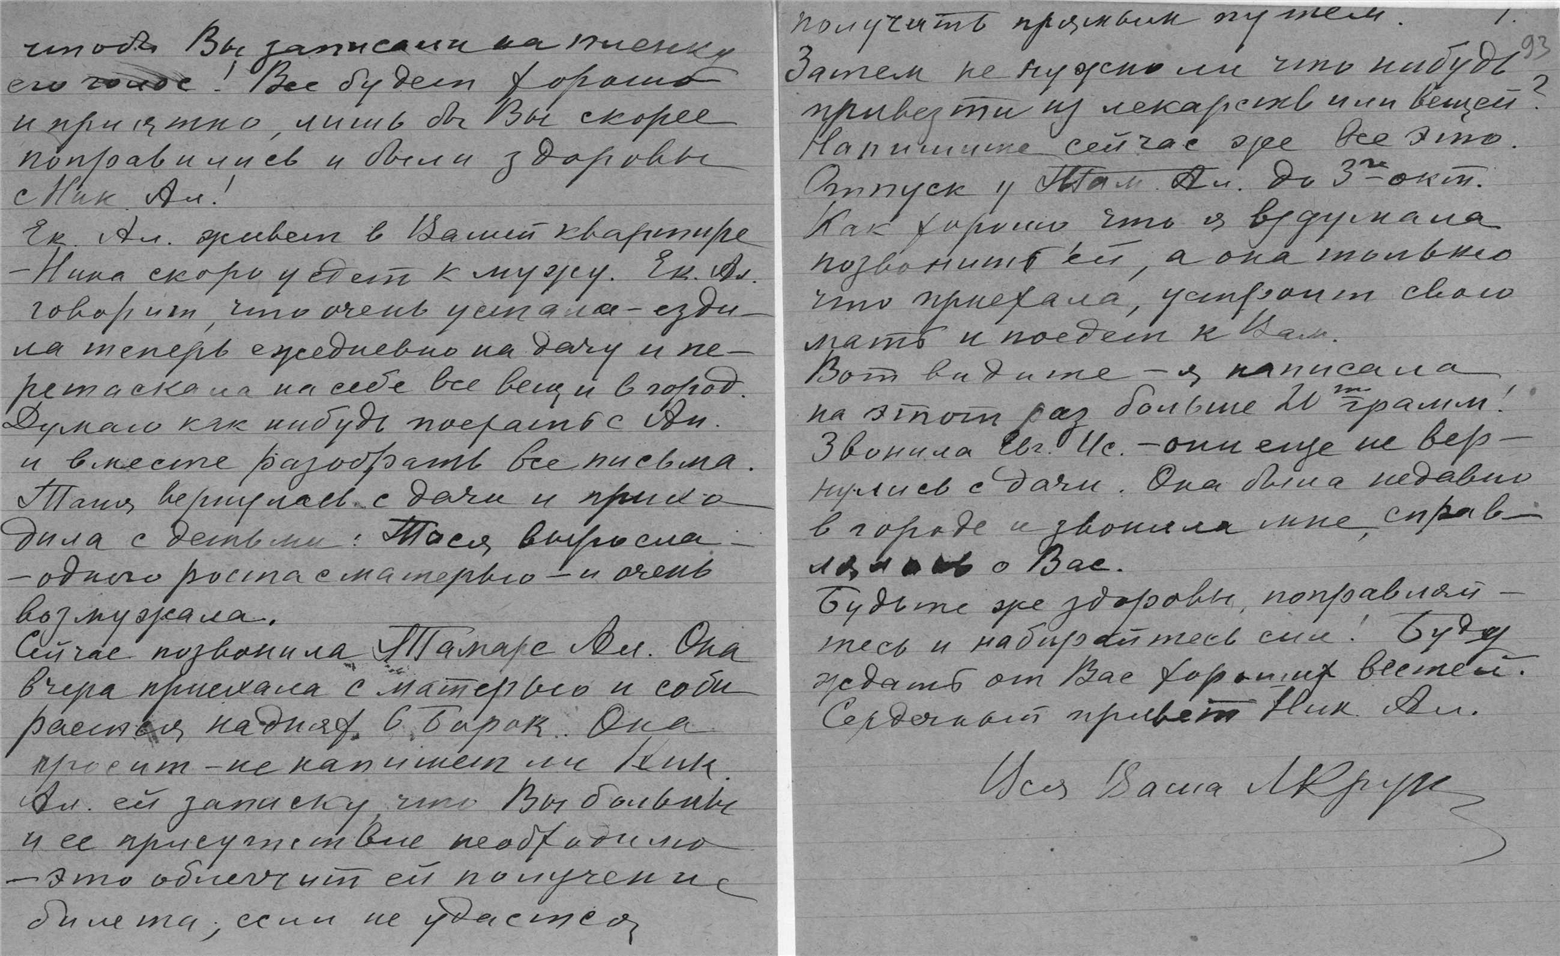 чтобы Вы записали на пленку
его голос! Все будет хорошо
и приятно, лишь бы Вы скорее
поправились и были здоровы
с Ник. Ал!
Ек. Ал. живет в Вашей квартире
– Нина скоро уедет к мужу. Ек. Ал.
говорит, что очень устала – езди–
ла теперь ежедневно на дачу и пе–
ретаскала на себе все вещи в город.
Думаю как нибудь поехать с Ан.
и вместе разобрать все письма.
Таня вернулась с дачи и прихо
дила с детьми. Тася выросла –
– одного роста с матерью – и очень
возмужала.
Сейчас позвонила Тамаре Ал. Она
вчера приехала с матерью и соби
рается на днях в Борок. Она
просит – не напишет ли Ник.
Ал. ей записку, что Вы больны
и ее присутствие необходимо
– это облегчит ей получение
билета, если не удастся
получить прямым путем.
93
Затем не нужно ли что нибудь
привезти из лекарств или вещей?
Напишите сейчас же все это.
Отпуск у Там. Ал. до 3го окт.
Как хорошо что я вздумала
позвонить ей, а она только
что приехала, устроит свою
мать и поедет к Вам.
Вот видите – я написала
на этот раз больше 20ти грамм!
Звонила Евг. Ис. – они еще не вер–
нулись с дачи. Она была недавно
в городе и звонила мне, справ–
лялась о Вас.
Будьте же здоровы, поправляй–
тесь и набирайтесь сил! Буду
ждать от Вас хороших вестей.
Сердечный привет Ник. Ал.
Вся Ваша ЛКрук